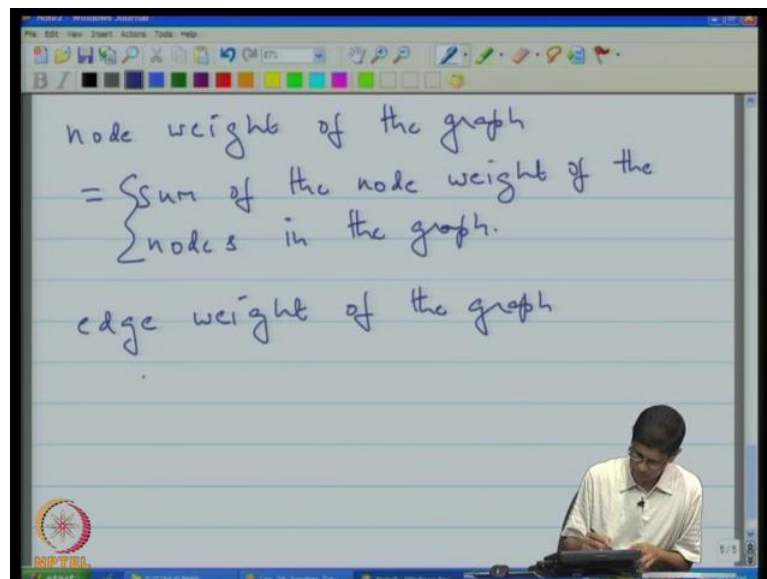 Note2 - Windows Journal
File Edit View Insert Actions Tools Help
87%
B I
node weight of the graph
= { sum of the node weight of the
nodes in the graph.
edge weight of the graph
5/5
NPTEL
start